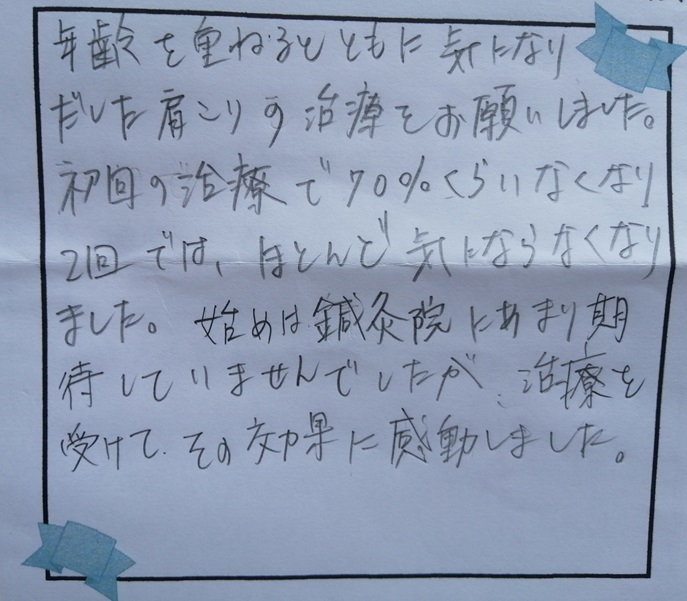 年齢を重ねるとともに気になり
だした肩こりの治療をお願いしました。
初回の治療で70%くらいなくなり
2回では、ほとんど気にならなくなり
ました。始めは鍼灸院にあまり期
待していませんでしたが、治療を
受けて、その効果に感動しました。